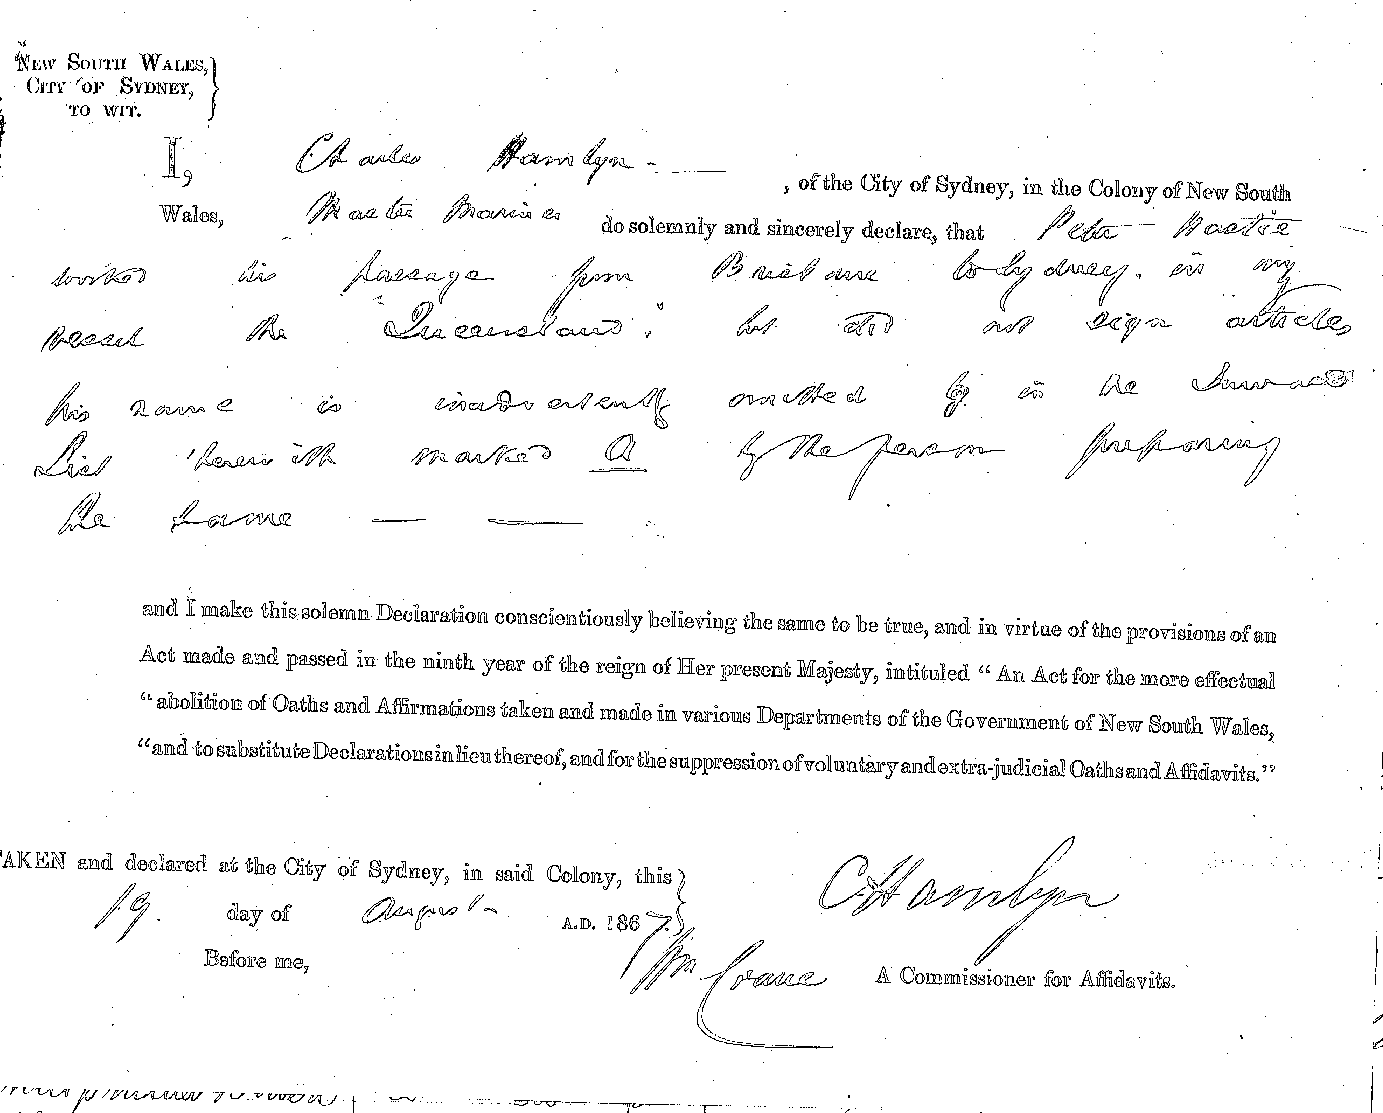 NEW SOUTH WALES,
CITY OF SYDNEY,
TO WIT.
I, Charles Hamlyn , of the City of Sydney, in the Colony of New South
Wales, Master Mariner do solemnly and sincerely declare, that Peter Hastie
worked his passage from Brisbane to Sydney in my
vessel the "Queensland", but did not sign articles
his name is inadvertently omitted by in the Inward
List herewith marked A by the person preparing
the same
and I make this solemn Declaration conscientiously believing the same to be true, and in virtue of the provisions of an
Act made and passed in the ninth year of the reign of Her present Majesty, intituled "An Act for the more effectual
"abolition of Oaths and Affirmations taken and made in various Departments of the Government of New South Wales,
"and to substitute Declarations in lieu thereof, and for the suppression of voluntary and extra-judicial Oaths and Affidavits."
TAKEN and declared at the City of Sydney, in said Colony, this
19. day of August A.D. 1867.
C Hamlyn
Before me,
Wm Crane A Commissioner for Affidavits.